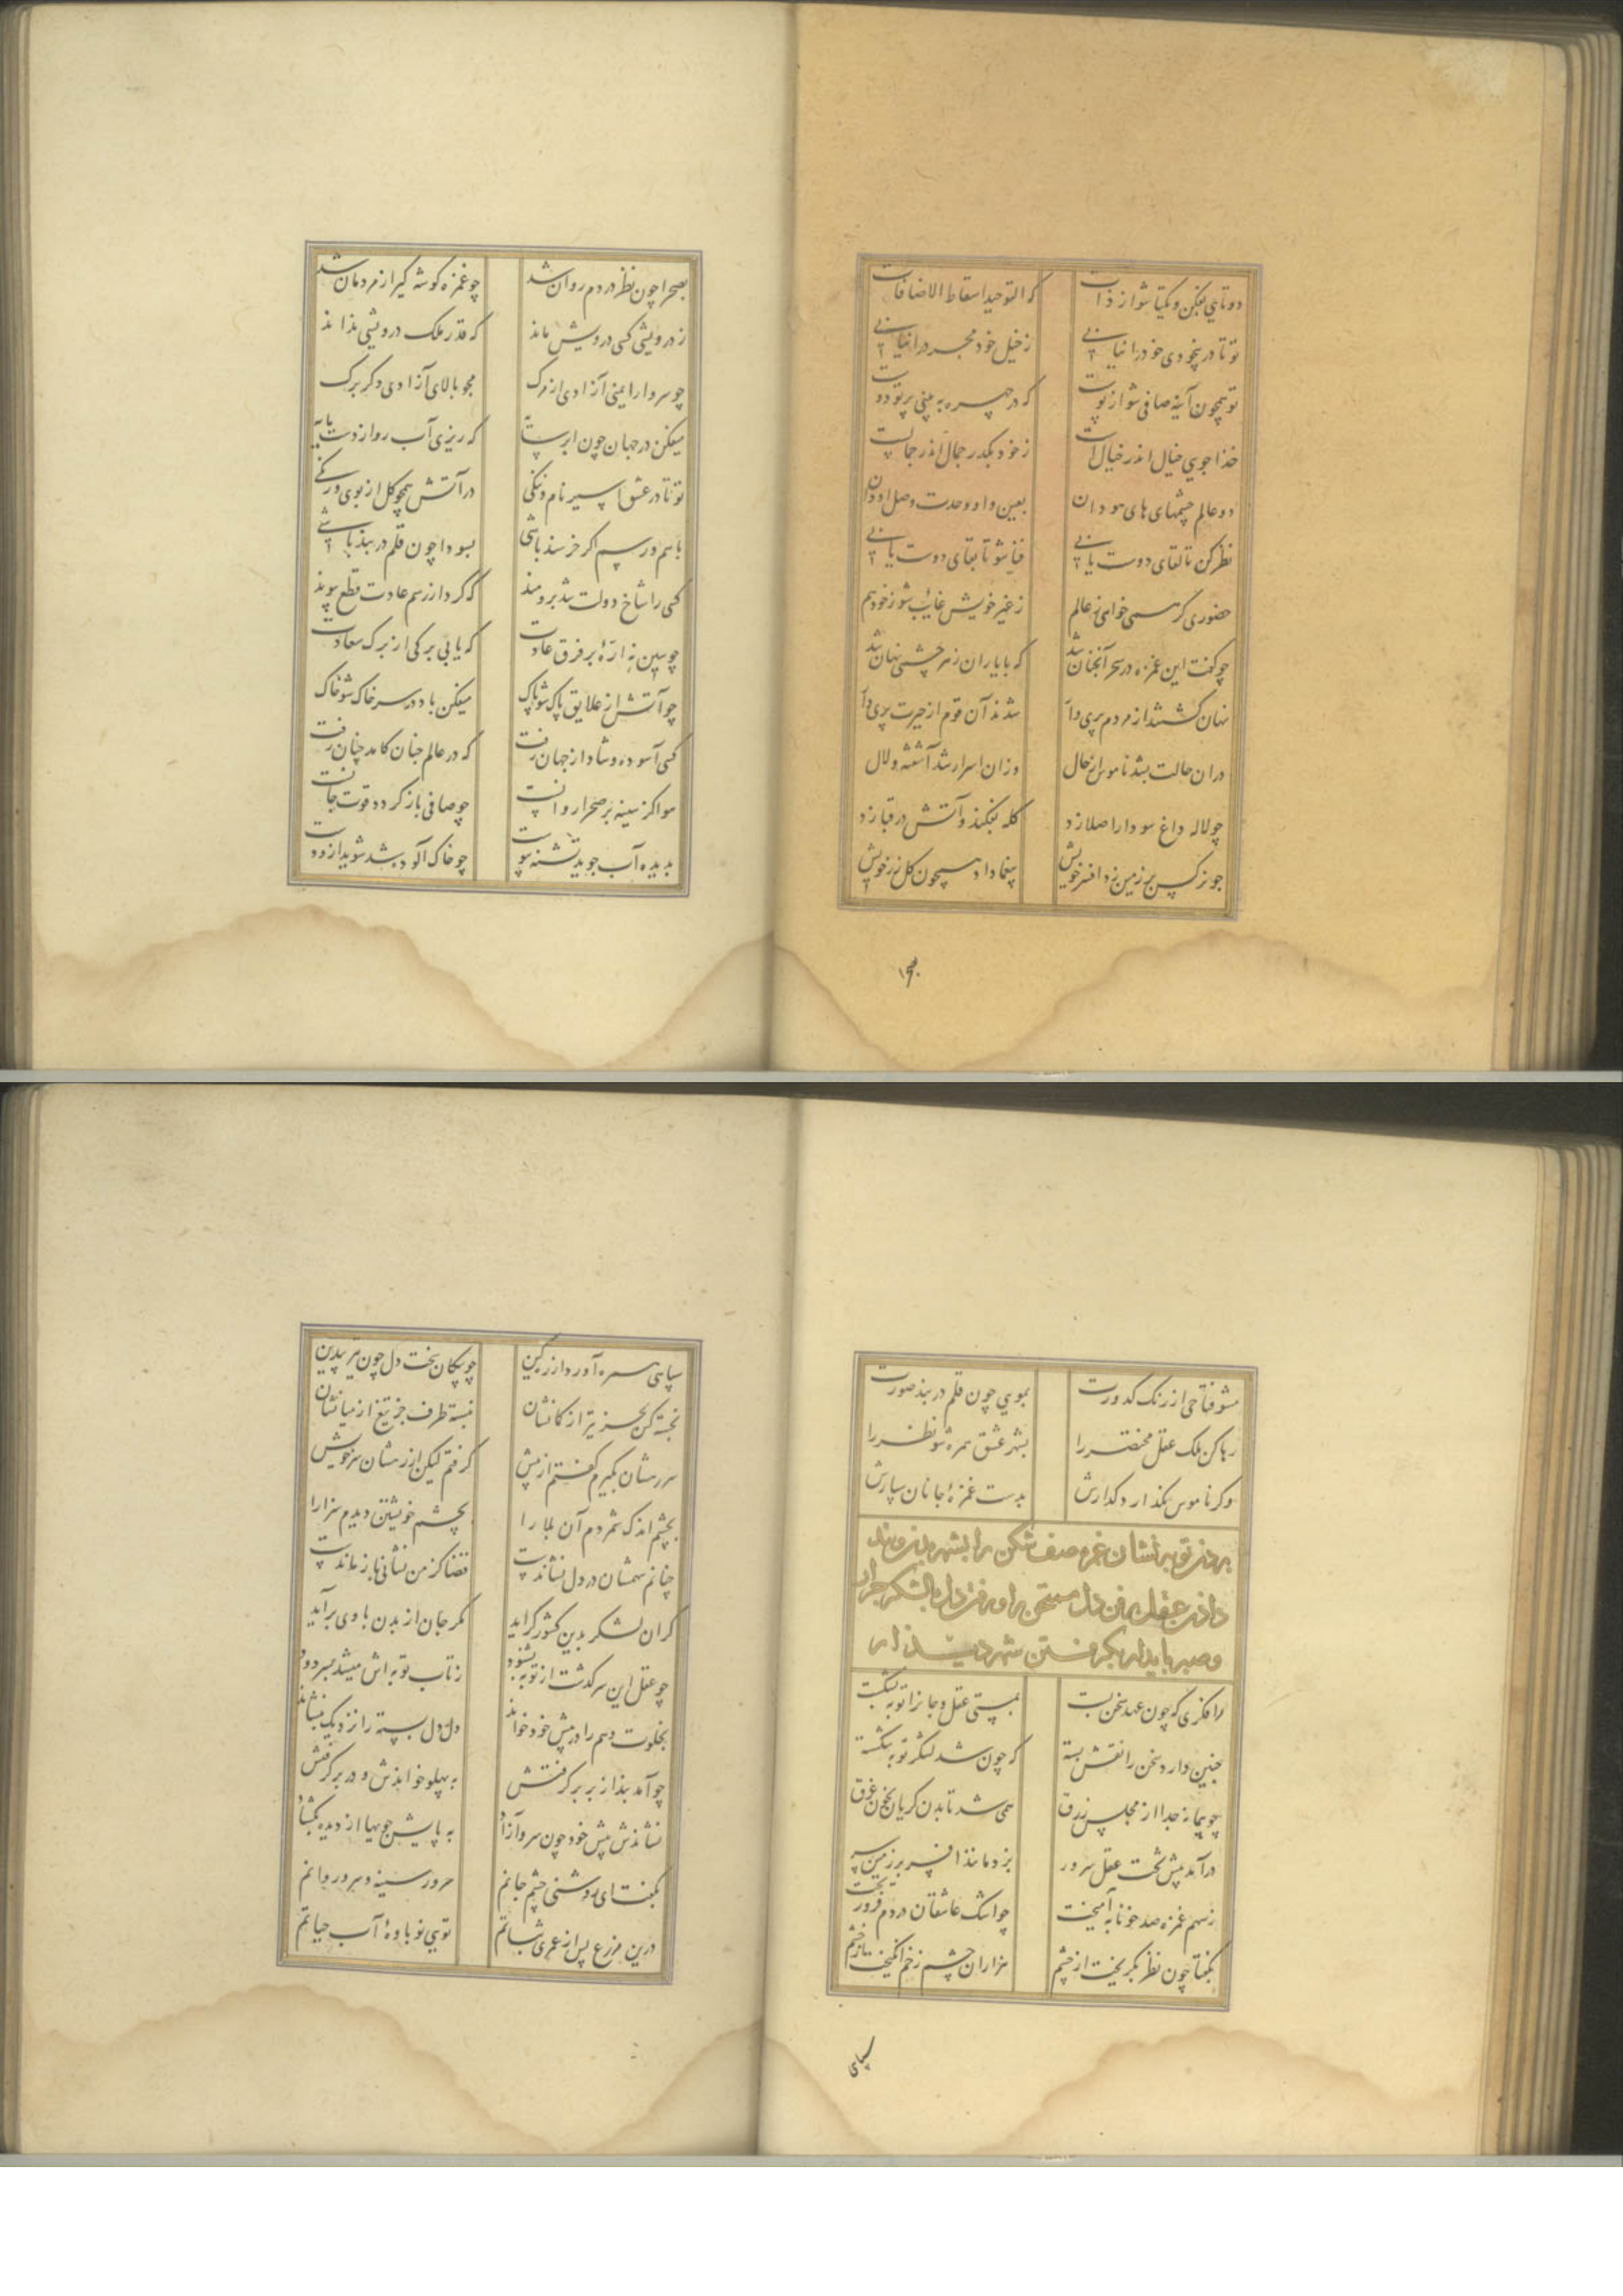 دوتایی بفکن و یکتا شو از ذات که التوحید اسقاط الاضافات
تو تا در بیخودی خود را نیابی ز خیل خود مجرد را نیابی
تو همچون آینه صافی شو از پوست که در چهره ببینی پرتو دوست
خدا جوی خیال اندر خیالست ز خود بگذر جمال اندر جمالست
دو عالم چشمهای های هو دان بعین واو وحدت وصل او دان
نظر کن تا لقای دوست یابی فنا شو تا بقای دوست یابی
حضوری گر همی خواهی ز عالم ز غیر خویش غایب شو ز خود هم
چو گفت این غمزه در سحر آنچنان شد که با یاران ز هر چشمی نهان شد
نهان گشتند از مردم پری وار شدند آن قوم از حیرت پری دار
دران حالت بشد ناموس از حال وزان اسرار شد آشفته و لال
چو لاله داغ سودا را صلا زد کله بفکند و آتش در قبا زد
چو نرگس بر زمین زد افسر خویش بیغما داد همچون گل زر خویش
بصحرا چون نظر در دم روان شد چو غمزه گوشه گیر از مردمان شد
ز درویشی کسی درویش ماند که قدر ملک درویشی نداند
چو سرو ار ایمنی آزادی از مرگ مجو بالای آزادی دگر برگ
میفکن در جهان چون ابر سایه که ریزی آب رو از دست مایه
تو تا در عشق اسیر نام و ننگی در آتش همچو گل از بوی و رنگی
باسم و رسم اگر خرسند باشی بسودا چون قلم در بند باشی
کسی را شاخ دولت شد برومند که کرد از رسم عادت قطع پیوند
چو سین نه اره بر فرق عادت که یابی برگی از برگ سعادت
چو آتش از علایق پاک شو پاک میفکن باد در سر خاک شو خاک
کسی آسوده و شاد از جهان رفت که در عالم چنان کامد چنان رفت
هوا کز سینه بر صحرا روانست چو صافی باز گردد قوت جانست
بدیده آب جوید تشنه پیوست چو خاک آلوده شد شوید ازو دست
بصحرا
مشو فتاحی از رنگ کدورت بموی چون قلم در بند صورت
رها کن ملک عقل مختصر را بشهر عشق همره شو نظر را
وگر ناموس نگذارد گذارش بدست غمزه جانان سپارش
بردن توبه نشان غمزه صف شکن را بشهر بدن و پند
دادن عقل بر فن دل ممتحن را و رفتن دل با لشکر جرار
و صبر پایدار بگرفتن شهر دیدار
هر افکری که چون عهد سخن بست بمستی عقل و جان را توبه بشکست
چنین دارد سخن را نقش بسته که چون شد لشکر توبه شکسته
چو پیمانه جدا از مجلس زرق همی شد تا بدن گریان بخون غرق
درآمد پیش تخت عقل سرور بزد مانند افسر بر زمین سر
ز سهم غمزه صد خونابه آمیخت چو اشک عاشقان در دم فرو ریخت
بگفتا چون نظر بگریخت از خشم هزاران چشم زخم انگیخت از چشم
سپاهی
سپاهی سر برآورد از کمین چو پیکان سخت دل چون تیر پر کین
نجسته کس گریز از کمانشان نبسته طرف جز تیغ از میانشان
سر رهشان بگیرم گفتم از پیش گرفتم لیکن از رهشان سر خویش
بچشم اندک شمردم آن بلا را بچشم خویشتن دیدم سزا را
چنانم سهمشان در دل نشاندست قضا کز من نشانی باز ماندست
گر آن لشکر بدین کشور گراید مگر جان از بدن با وی برآید
چو عقل این سرگذشت از توبه بشنود ز تاب توبه اش میشد بسر دود
بخلوت وهم را در پیش خود خواند دل دل بسته را نزدیک بنشاند
چو آمد بند از بر برگرفتش به پهلو خواندش و در بر گرفتش
نشاندش پیش خود چون سرو آزاد به پایش جویها از دیده بگشاد
بگفت ای روشنی چشم جانم سرور سینه و سرو روانم
درین مزرع پس از عمری شتابم تویی نوباوه آب حیاتم